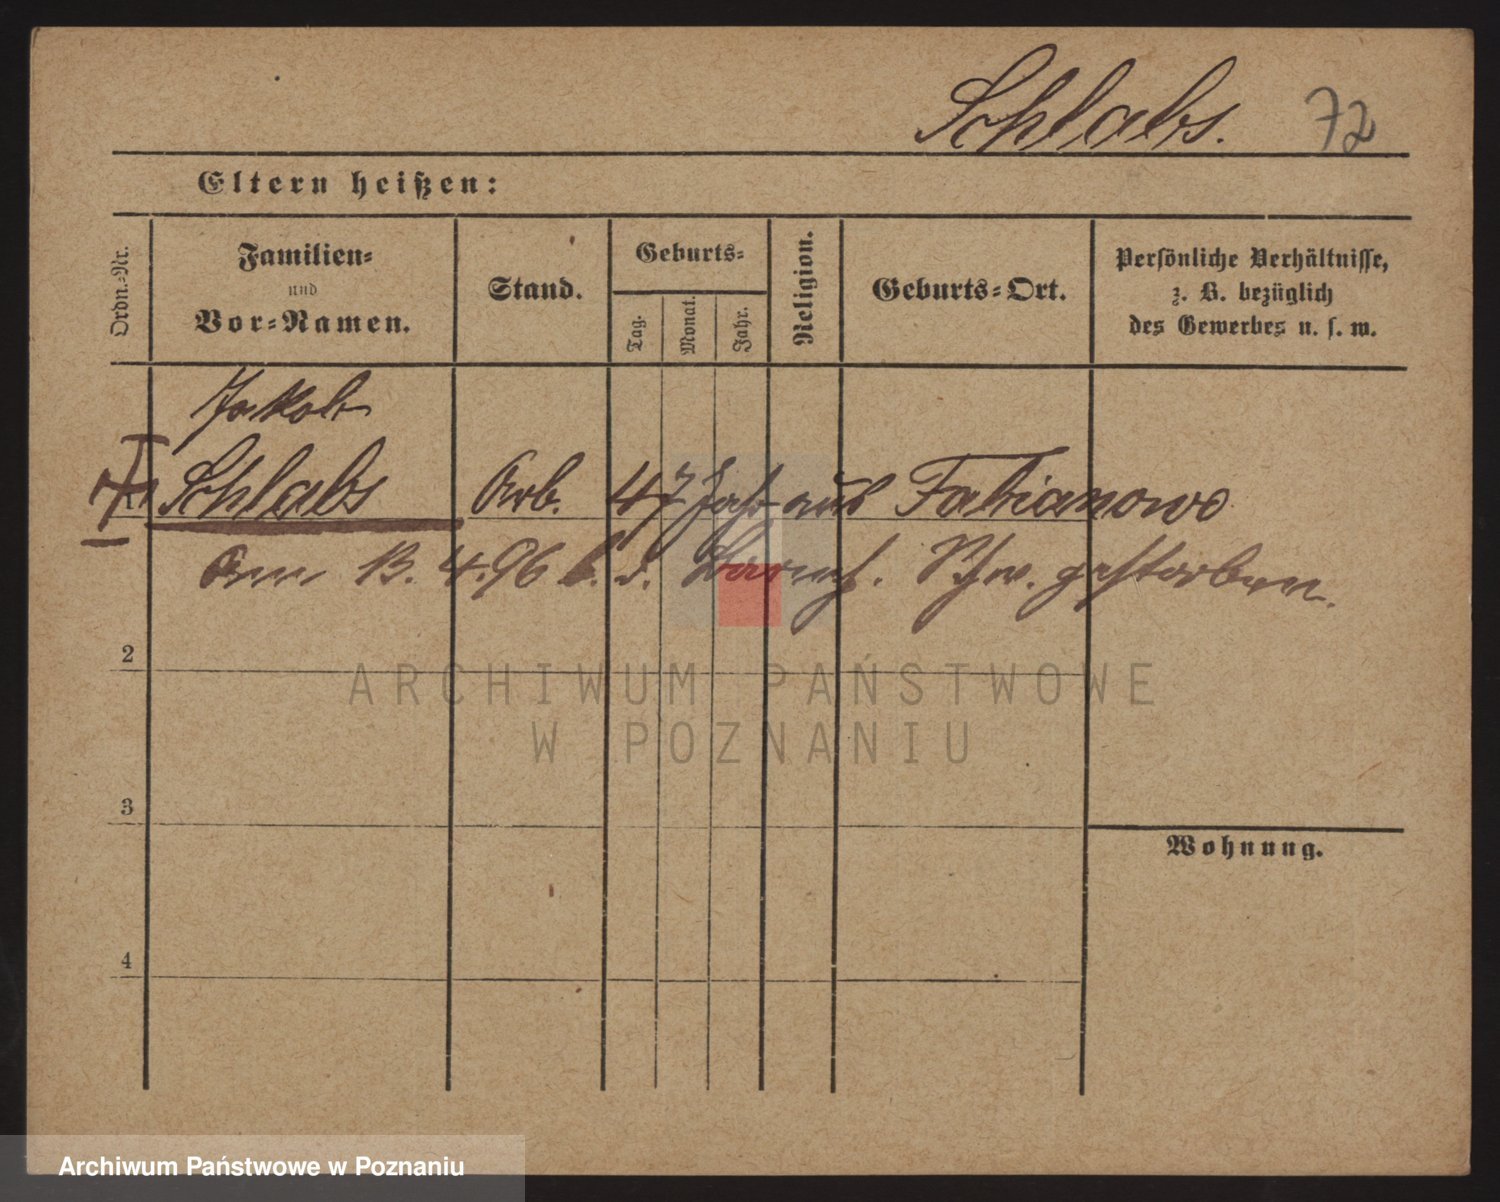 Schlabs. 72
Eltern heißen:
Ordn.-Nr.
Familien-
und
Vor-Namen.
Stand.
Geburts-
Tag.
Monat.
Jahr.
Religion.
Geburts-Ort.
Persönliche Verhältnisse,
z. B. bezüglich
des Gewerbes u. s. w.
Jakob
Schlabs Arb. 47 Jahr aus Fabianowo
Am 13. 4. 96 b. d. Barmh. Schw. gestorben.
2
3
4
Wohnung.
ARCHIWUM PAŃSTWOWE
W POZNANIU
Archiwum Państwowe w Poznaniu